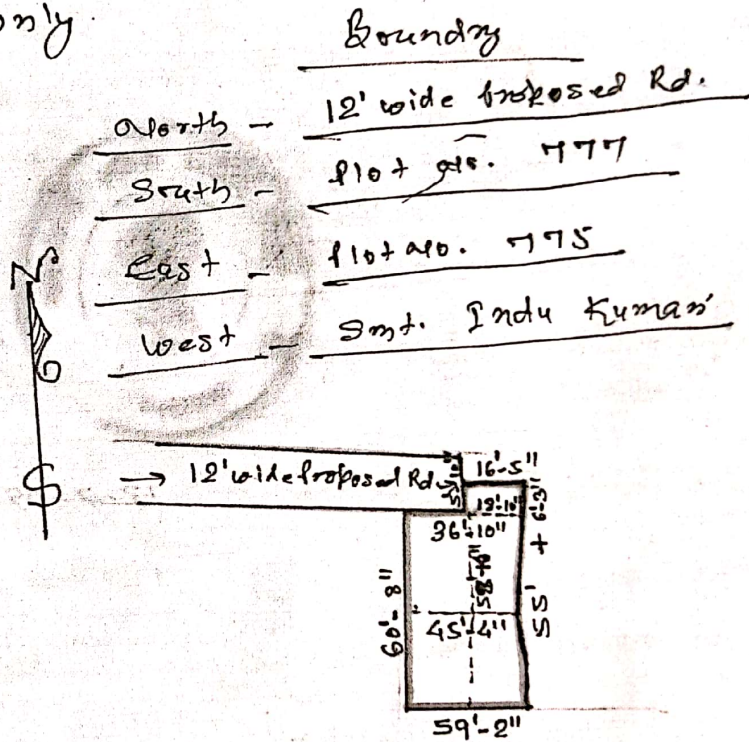 only
Boundry
North - 12' wide proposed Rd.
South - Plot No. 777
East - Plot No. 775
West - Smt. Indu Kumari
N
S
→ 12' wide Proposed Rd.
16'-5"
36'-10"
6'-3"
+
55'
60'-8"
45'-4"
59'-2"